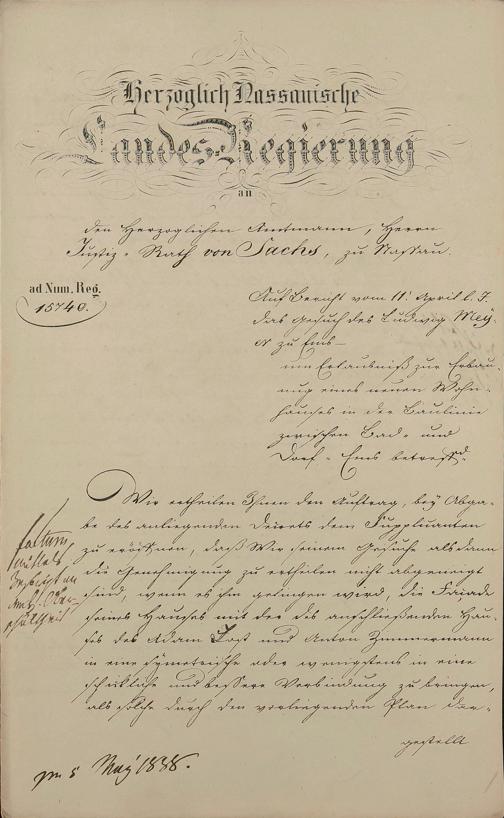 Herzoglich Nassauische
Landes-Regierung
an
den Herzoglichen Amtmann, Herrn
Justiz-Rath von Sachs, zu Nassau.
ad Num. Reg.
15740.
Auf Bericht vom 11. April l. J.
das Gesuch des Ludwig Mey-
er zu Ems
um Erlaubniß zur Erbau-
ung eines neuen Wohn-
hauses in der Baulinie
zwischen Bad- und
Dorf-Ems betreffd.
Wir ertheilen Ihnen den Auftrag, bey Abga-
be des anliegenden Decrets dem Supplicanten
zu eröffnen, daß Wir seinem Gesuche alsdann
die Genehmigung zu ertheilen nicht abgeneigt
sind, wenn es ihm gelingen wird, die Façade
seines Hauses mit der des anschließenden Hau-
ses des Adam Jost und Anton Zimmermann
in eine symetrische oder wenigstens in eine
schickliche und bessere Verbindung zu bringen,
als solche durch den vorliegenden Plan dar-
gestellt
factum
mittels
an
Ober-
schultheis
pr. 5 May 1838.